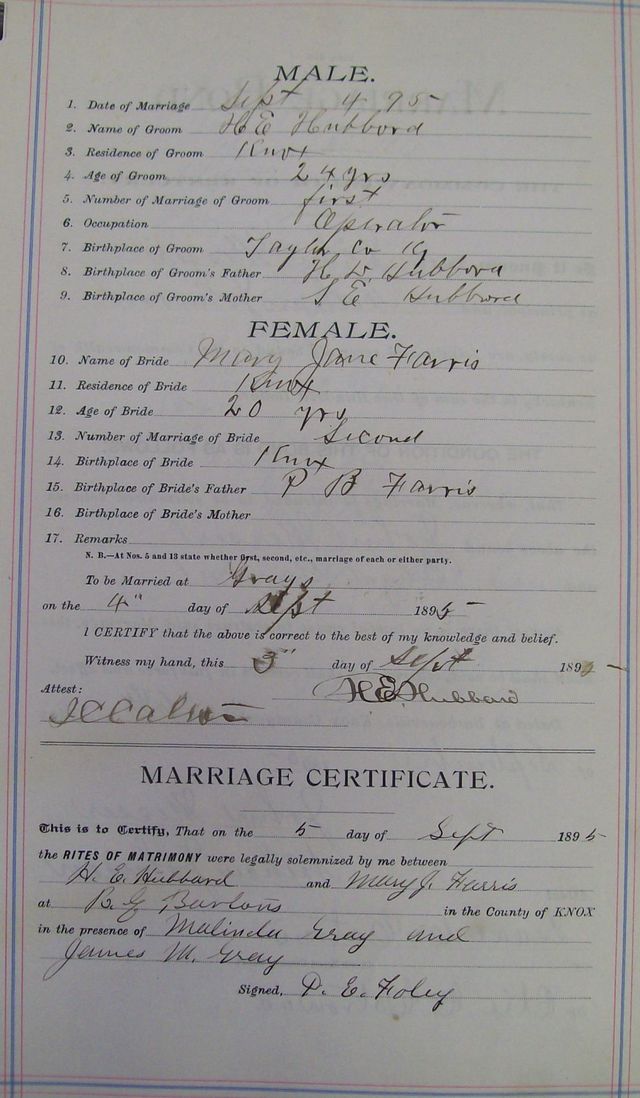 MALE.
1. Date of Marriage Sept 4 95
2. Name of Groom H E Hubbord
3. Residence of Groom Knox
4. Age of Groom 24 yrs
5. Number of Marriage of Groom first
6. Occupation Operator
7. Birthplace of Groom Taylor Co Ky
8. Birthplace of Groom's Father H D Hubbord
9. Birthplace of Groom's Mother S E Hubbord
FEMALE.
10. Name of Bride Mary Jane Farris
11. Residence of Bride Knox
12. Age of Bride 20 yrs
13. Number of Marriage of Bride Second
14. Birthplace of Bride Knox
15. Birthplace of Bride's Father P B Farris
16. Birthplace of Bride's Mother
17. Remarks
N. B.—At Nos. 5 and 13 state whether first, second, etc., marriage of each or either party.
To be Married at Grays
on the 4" day of Sept 1895
I CERTIFY that the above is correct to the best of my knowledge and belief.
Witness my hand, this 3" day of Sept 1895
Attest: H.E. Hubbard
MARRIAGE CERTIFICATE.
This is to Certify, That on the 5 day of Sept 1895
the RITES OF MATRIMONY were legally solemnized by me between
H. E. Hubbard and Mary J. Farris
at B. G. in the County of KNOX
in the presence of Malinda Gray and
James M. Gray
Signed, P. E. Foley